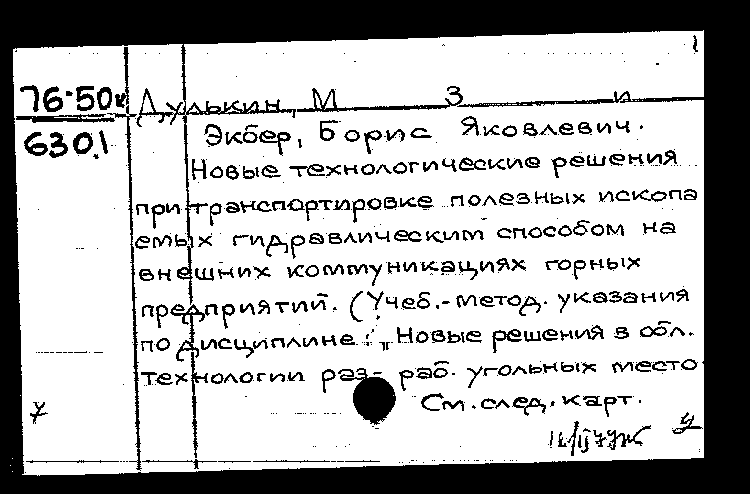 76-50к Дулькин, М З и
630.1 Экбер, Борис Яковлевич.
Новые технологические решения
при транспортировке полезных ископа
емых гидравлическим способом на
внешних коммуникациях горных
предприятий. (Учеб.-метод. указания
по дисциплине: "Новые решения в обл.
технологии раз- раб. угольных место
См. след. карт.